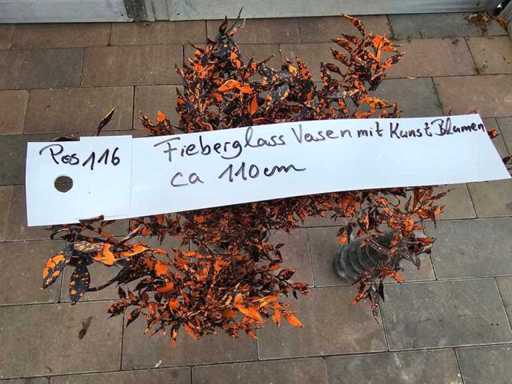 Pos 116
Fieberglass Vasen mit Kunst Blumen
ca 110cm